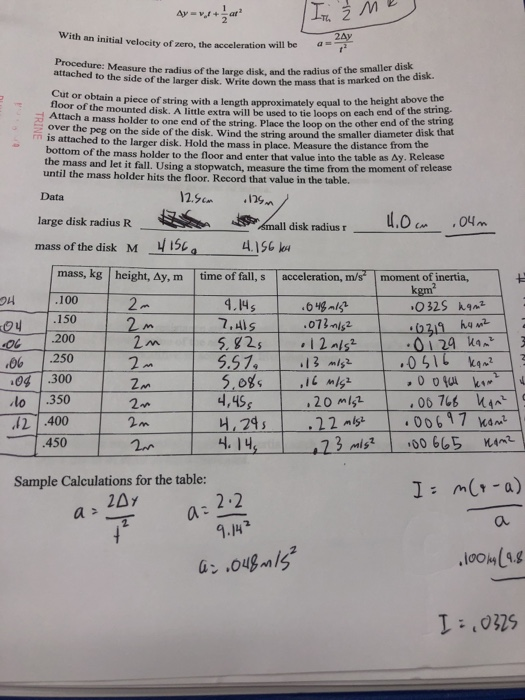 Δy = v₀t + 1/2 at²
1/2 M
With an initial velocity of zero, the acceleration will be a = 2Δy/t²
Procedure: Measure the radius of the large disk, and the radius of the smaller disk
attached to the side of the larger disk. Write down the mass that is marked on the disk.
Cut or obtain a piece of string with a length approximately equal to the height above the
floor of the mounted disk. A little extra will be used to tie loops on each end of the string.
Attach a mass holder to one end of the string. Place the loop on the other end of the string
over the peg on the side of the disk. Wind the string around the smaller diameter disk that
is attached to the larger disk. Hold the mass in place. Measure the distance from the
bottom of the mass holder to the floor and enter that value into the table as Δy. Release
the mass and let it fall. Using a stopwatch, measure the time from the moment of release
until the mass holder hits the floor. Record that value in the table.
TRINE
Data 12.5cm .125m
large disk radius R small disk radius r 4.0 cm .04m
mass of the disk M 4156g 4.156 kg
mass, kg height, Δy, m time of fall, s acceleration, m/s² moment of inertia, kgm²
04 .100 2m 9.14s .048m/s² .0325 kgm²
04 .150 2m 7.41s .073m/s² .0319 kgm²
.06 .200 2m 5.82s .12m/s² .0129 kgm²
.06 .250 2m 5.57s .13 m/s² .0516 kgm²
.08 .300 2m 5.08s .16 m/s² kgm²
.10 .350 2m 4.45s .20 m/s² .00768 kgm²
.12 .400 2m 4.29s .22 m/s² .00697 kgm²
.450 2m 4.14s .23 m/s² .00665 kgm²
Sample Calculations for the table:
a = 2Δy/t² a = 2·2/9.14²
a = .048m/s²
I = m(g-a)/a
.100kg(9.8
I = .0325